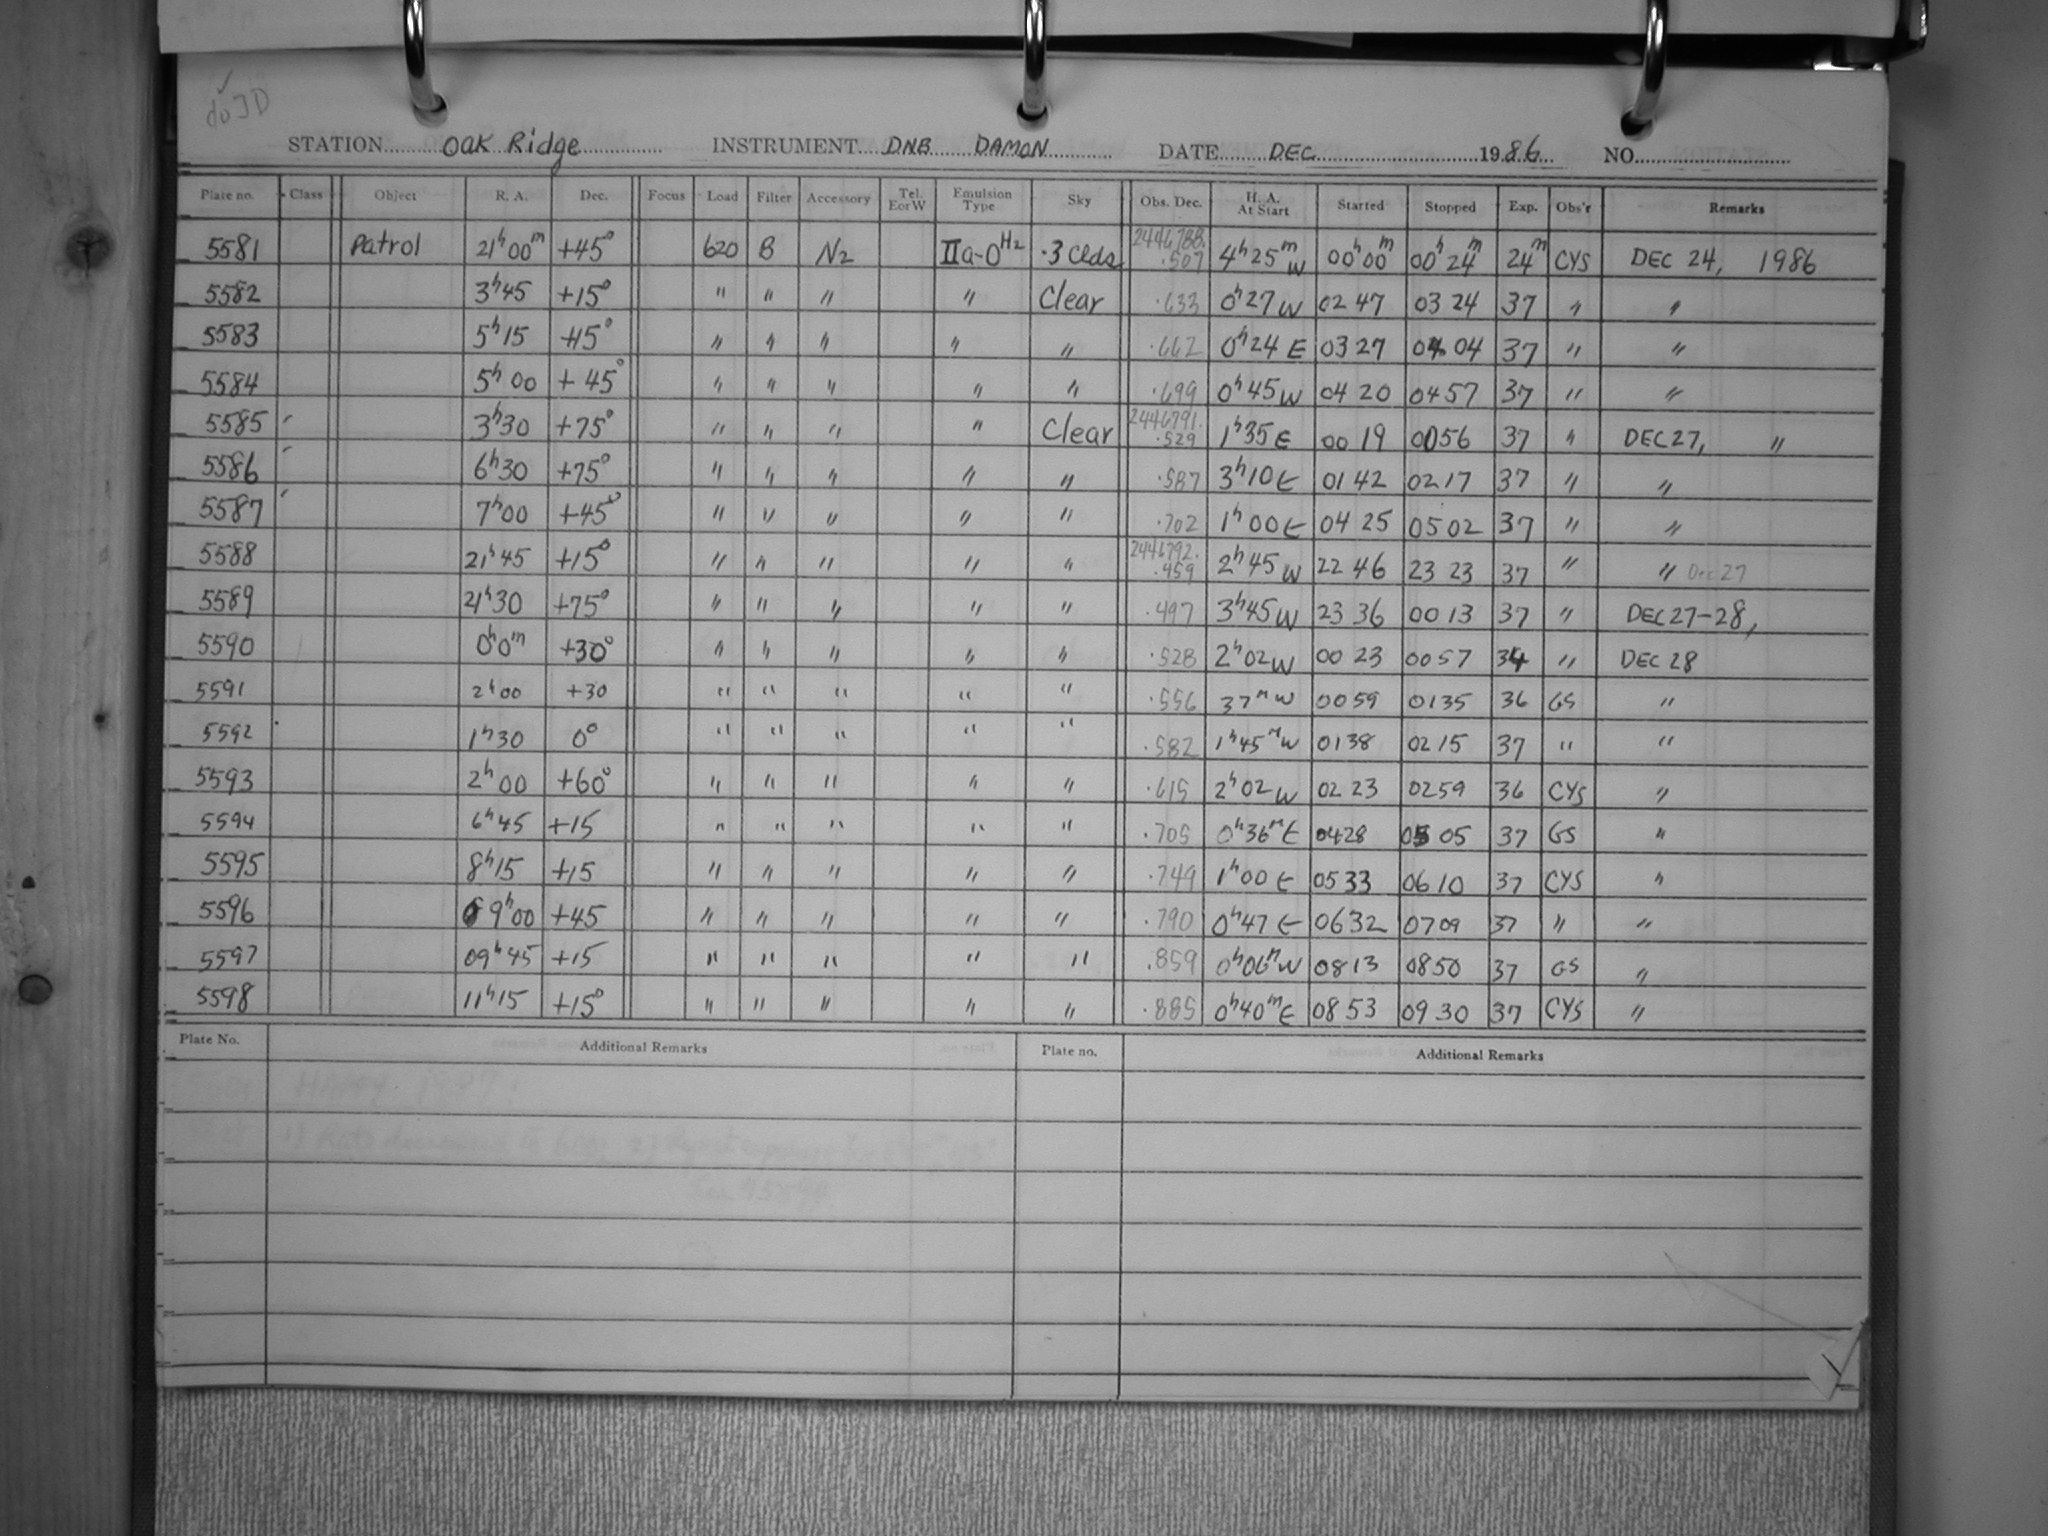 ✓
do JD
STATION Oak Ridge INSTRUMENT DNB DAMON DATE DEC 1986 NO.
Plate no. Class Object R. A. Dec. Focus Load Filter Accessory Tel. E or W Emulsion Type Sky Obs. Dec. H. A. At Start Started Stopped Exp. Obs'r Remarks
5581 Patrol 21h 00m +45° 620 B N2 IIa-O H2 .3 Clds 2446788. .507 4h 25m W 00h 00m 00h 24m 24m CYS DEC 24, 1986
5582 3h 45 +15° " " " " Clear .633 0h 27 W 02 47 03 24 37 " "
5583 5h 15 +15° " " " " " .662 0h 24 E 03 27 04 04 37 " "
5584 5h 00 +45° " " " " " .699 0h 45 W 04 20 04 57 37 " "
5585 3h 30 +75° " " " " Clear 2446791. .529 1h 35 E 00 19 00 56 37 " DEC 27, "
5586 6h 30 +75° " " " " " .587 3h 10 E 01 42 02 17 37 " "
5587 7h 00 +45° " " " " " .702 1h 00 E 04 25 05 02 37 " "
5588 21h 45 +15° " " " " " 2446792. .459 2h 45 W 22 46 23 23 37 " " Dec 27
5589 21h 30 +75° " " " " " .497 3h 45 W 23 36 00 13 37 " DEC 27-28,
5590 0h 0m +30° " " " " " .528 2h 02 W 00 23 00 57 34 " DEC 28
5591 2h 00 +30 " " " " " .556 37m W 00 59 01 35 36 GS "
5592 1h 30 0° " " " " " .582 1h 45m W 01 38 02 15 37 " "
5593 2h 00 +60° " " " " " .615 2h 02 W 02 23 02 59 36 CYS "
5594 6h 45 +15 " " " " " .705 0h 36m E 04 28 05 05 37 GS "
5595 8h 15 +15 " " " " " .749 1h 00 E 05 33 06 10 37 CYS "
5596 09h 00 +45 " " " " " .790 0h 47 E 06 32 07 09 37 " "
5597 09h 45 +15 " " " " " .859 0h 06m W 08 13 08 50 37 GS "
5598 11h 15 +15° " " " " " .885 0h 40m E 08 53 09 30 37 CYS "
Plate No. Additional Remarks Plate no. Additional Remarks